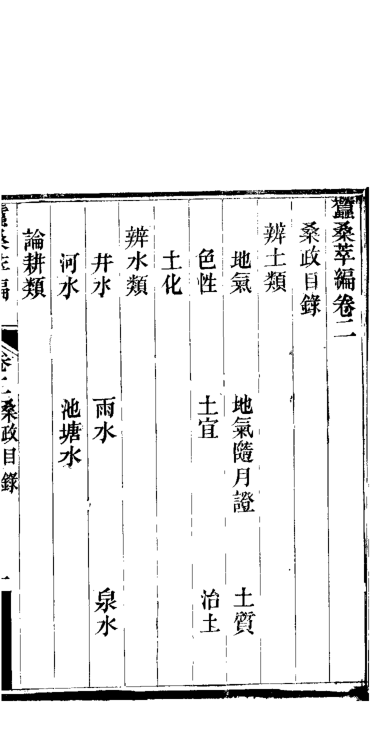 蠶桑萃編卷二
桑政目錄
辨土類
地氣 地氣隨月證 土質
色性 土宜 治土
土化
辨水類
井水 雨水 泉水
河水 池塘水
論耕類
蠶桑萃編 卷二桑政目錄 一